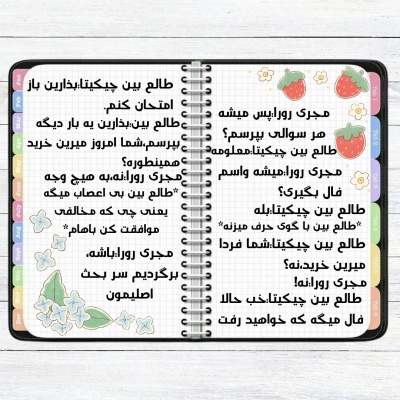 مجری رورا:پس میشه
هر سوالی بپرسم؟
طالع بین چیکیتا:معلومه
مجری رورا:میشه واسم
فال بگیری؟
طالع بین چیکیتا:بله
*طالع بین با گوی حرف میزنه*
طالع بین چیکیتا:شما فردا
میرین خرید،نه؟
مجری رورا:نه!
طالع بین چیکیتا:خب حالا
فال میگه که خواهید رفت
طالع بین چیکیتا:بذارین باز
امتحان کنم.
طالع بین:بذارین یه بار دیگه
بپرسم،شما امروز میرین خرید
همینطوره؟
مجری رورا:نه،به هیچ وجه
*طالع بین بی اعصاب میگه
یعنی چی که مخالفی
موافقت کن باهام*
مجری رورا:باشه،
برگردیم سر بحث
اصلیمون